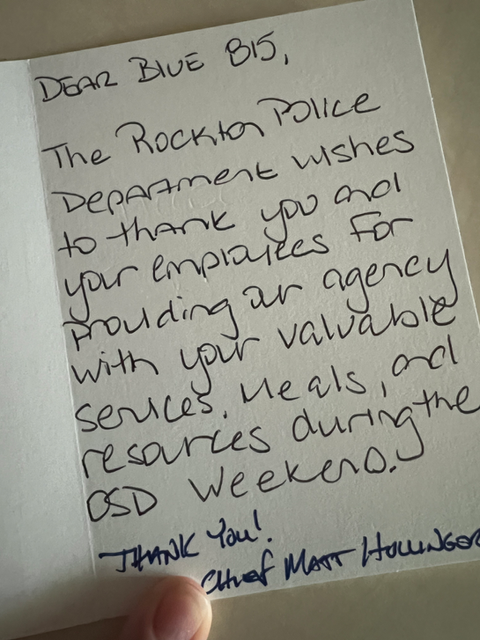 Dear Blue 815,
The Rockton Police
Department wishes
to thank you and
your employees for
providing our agency
with your valuable
services, meals, and
resources during the
OSD Weekend.
Thank You!
Chief Matt Hollinger